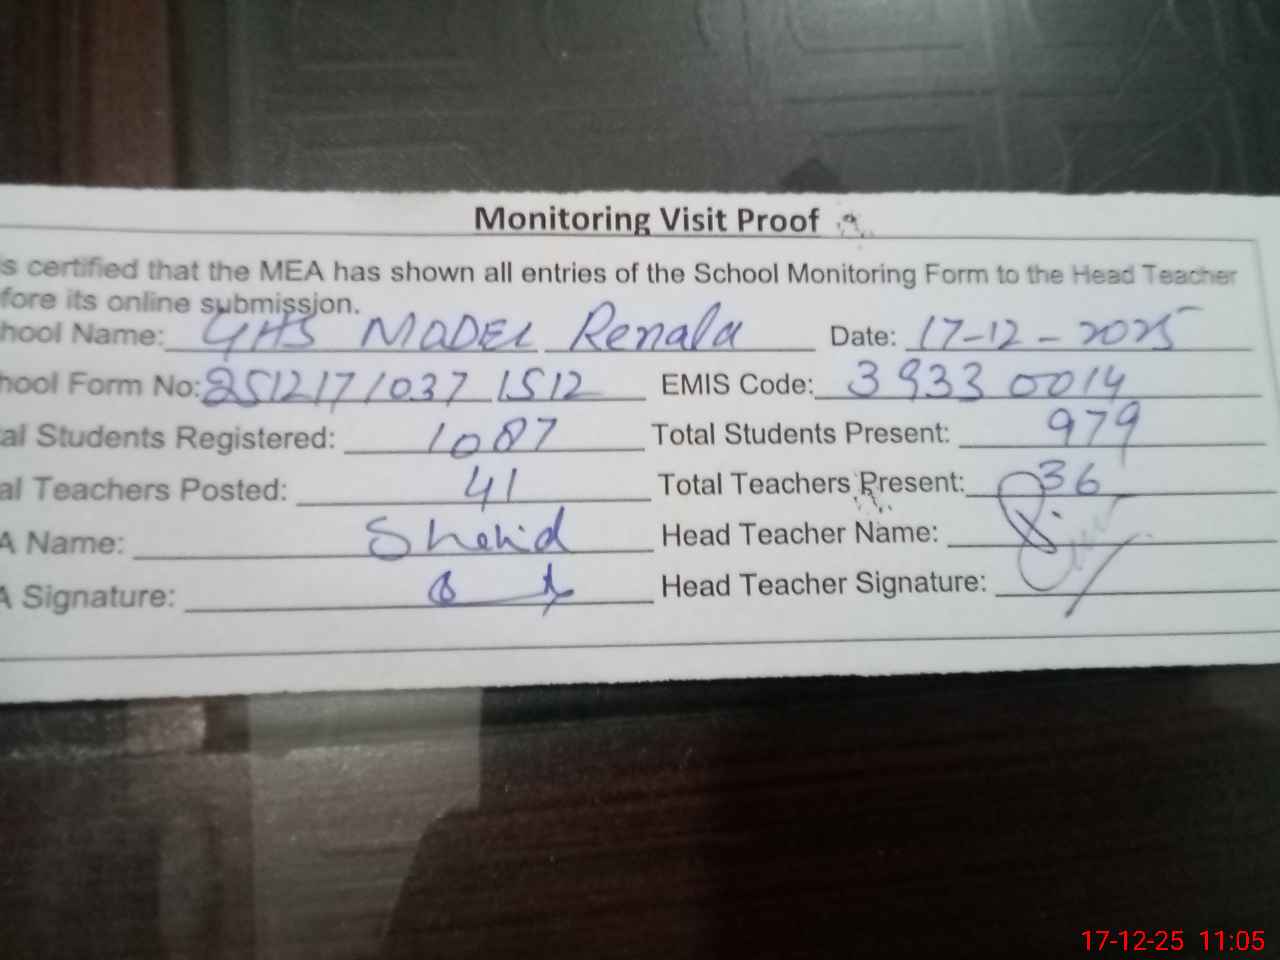 Monitoring Visit Proof
s certified that the MEA has shown all entries of the School Monitoring Form to the Head Teacher
fore its online submission.
hool Name: GHS MODEL Renala Date: 17-12-2025
hool Form No: 251217/037 1512 EMIS Code: 39330014
al Students Registered: 1087 Total Students Present: 979
al Teachers Posted: 41 Total Teachers Present: 36
A Name: Shahid Head Teacher Name:
A Signature: Head Teacher Signature:
17-12-25 11:05